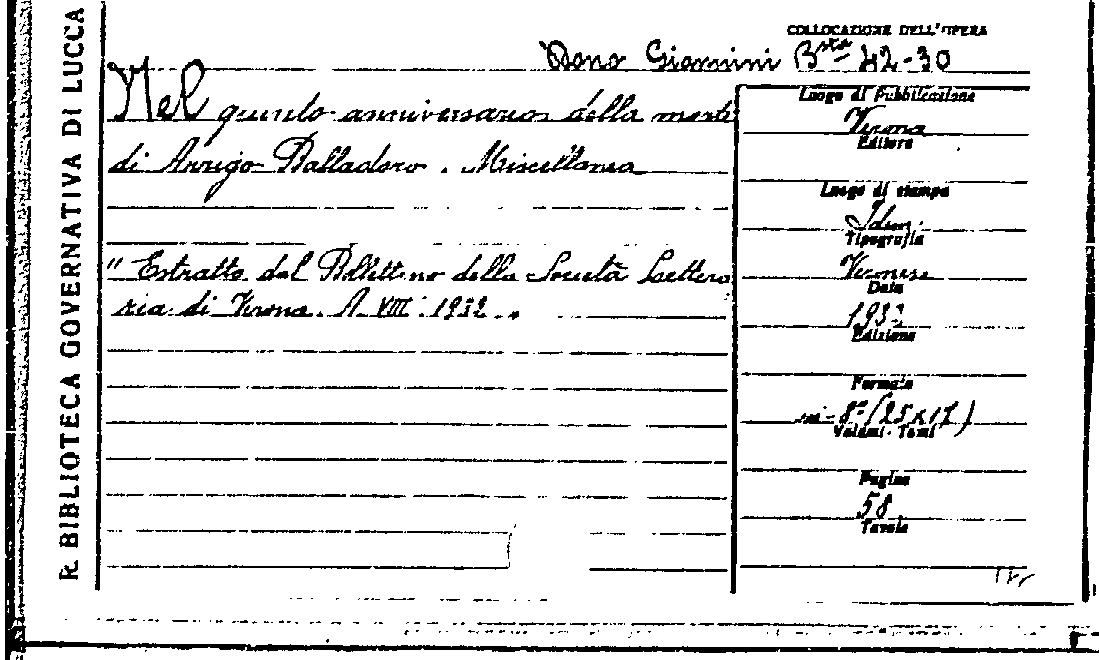 R. BIBLIOTECA GOVERNATIVA DI LUCCA
COLLOCAZIONE DELL'OPERA
Dono Giannini Bsta 42-30
Nel quinto anniversario della morte
di Arrigo Balladoro. Miscellanea
"Estratto dal Bollettino della Società Lettera
ria di Verona. A. VIII. 1932.
Luogo di Pubblicazione
Verona
Editore
Luogo di stampa
Idem.
Tipografia
Veronese
Data
1932
Edizione
Formato
in-8° (25x17)
Volumi - Tomi
Pagine
58
Tavole